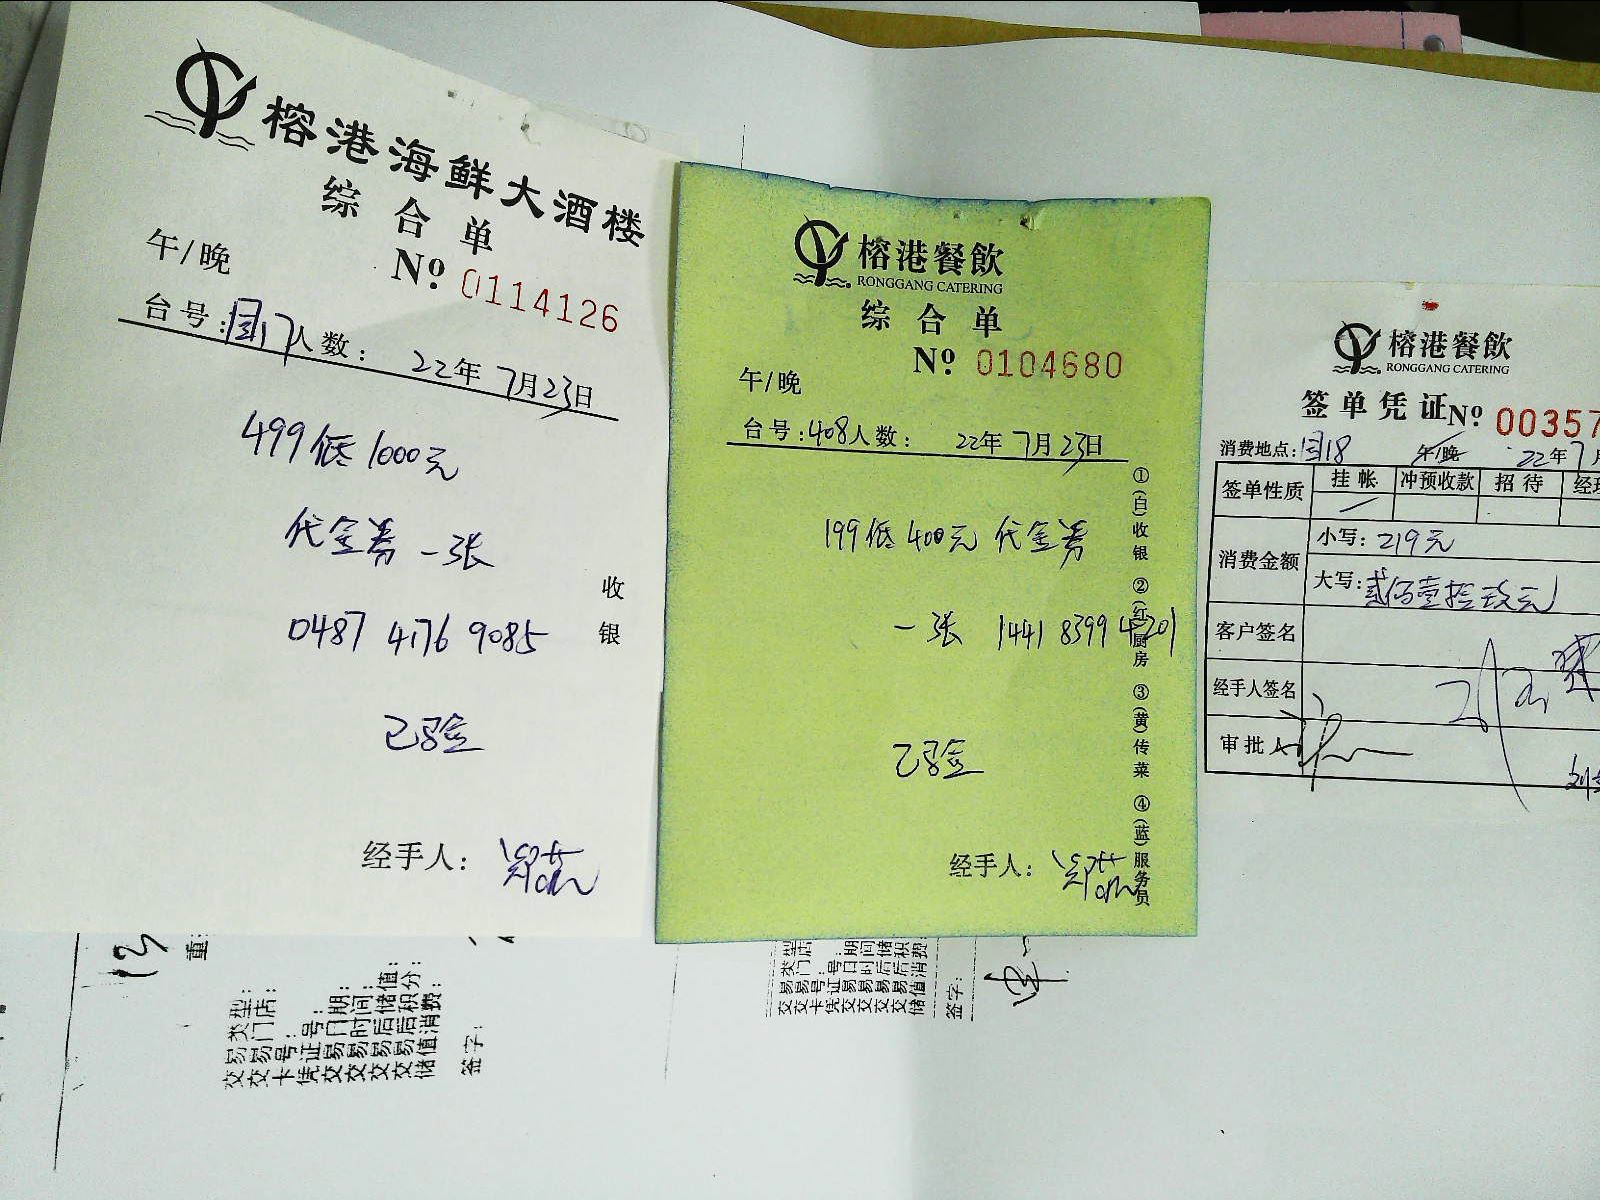 榕港海鲜大酒楼
综合单
午/晚
No 0114126
台号: 人数: 22年7月23日
499低1000元
代金券一张
0487 4176 9085
已验
收银
经手人:
榕港餐飲
RONGGANG CATERING
综合单
No 0104680
午/晚
台号:408人数: 22年7月23日
199低400元 代金券
一张 1441 8399 4201
已验
经手人:
①(白)收银 ②(红)厨房 ③(黄)传菜 ④(蓝)服务员
榕港餐飲
RONGGANG CATERING
签单凭证No 00357
消费地点: 午/晚 22年7月
签单性质 挂帐 冲预收款 招待 经理
消费金额 小写:219元
大写:贰佰壹拾玖元
客户签名
经手人签名
审批人
重:
交易类型:
交易门店:
卡号:
凭证号:
交易日期:
交易时间:
交易后储值:
交易后积分:
储值消费:
签字:
交易类型
交易门店
卡号:
凭证号
交易日期
交易时间
交易后储
交易后积
储值消费
签字: